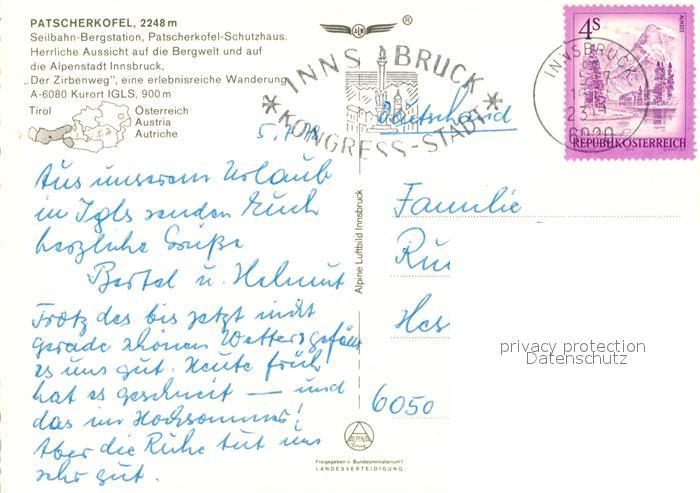 PATSCHERKOFEL, 2248 m
Seilbahn-Bergstation, Patscherkofel-Schutzhaus.
Herrliche Aussicht auf die Bergwelt und auf
die Alpenstadt Innsbruck,
„Der Zirbenweg", eine erlebnisreiche Wanderung
A-6080 Kurort IGLS, 900 m
Tirol
Österreich
Austria
Autriche
®
INNSBRUCK
KONGRESS-STADT
4S
ALMSEE
INNSBRUCK
6020
REPUBLIK ÖSTERREICH
5.7.
Deutschland
Aus unserem Urlaub
in Igls senden Euch
herzliche Grüße
Bertel u. Helmut
Trotz des bis jetzt nicht
gerade schönen Wetters gefällt
es uns gut. Heute früh
hat es geschneit — und
das im Hochsommer!
Aber die Ruhe tut uns
sehr gut.
Alpine Luftbild Innsbruck
Familie
Ru
Hes
6050
privacy protection
Datenschutz
ALPINE
Freigegeben v. Bundesministerium f.
LANDESVERTEIDIGUNG